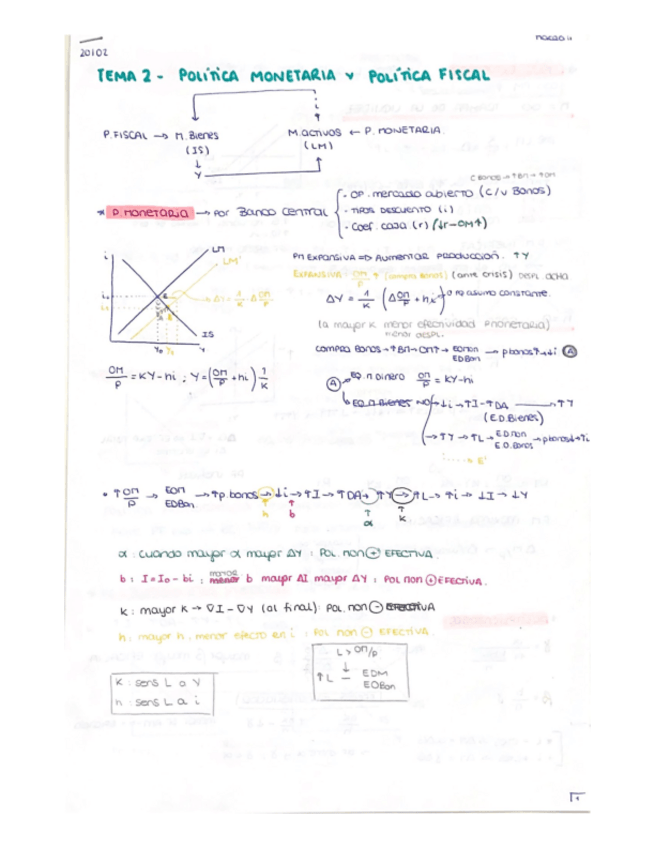 20102
TEMA 2 - POLÍTICA MONETARIA Y POLÍTICA FISCAL
P. FISCAL → M. Bienes
(IS)
↓
Y
M. activos ← P. MONETARIA.
(LM)
C BONOS → ↑BM → ↑OM
* P. MONETARIA → POR BANCO CENTRAL
- OP. mercado abierto (C/V BONOS)
- TIPOS DESCUENTO (i)
- Coef. caja (r) (↓r-OM↑)
i
LM
LM'
IS
Y₀
Y
PM EXPANSIVA => AUMENTAR PRODUCCIÓN. ↑Y
EXPANSIVA: OM/P ↑ (compra bonos) (ante crisis) DESPL. DCHA
ΔY = 1/K · Δ OM/P
ΔY = 1/K (Δ OM/P + hi) → 0 "i" asumo constante.
(a mayor K menor efectividad P monetaria)
menor DESPL.
compra Bonos → ↑BM → OM↑ → EOMon
EDBon → p bonos ↑ → ↓i (A)
OM/P = KY - hi ; Y = (OM/P + hi) 1/K
(A) → EQ. M Dinero OM/P = KY - hi
EQ. M. Bienes NO → ↓i → ↑I - ↑DA → ↑Y
(E.D. Bienes)
→ ↑Y → ↑L → E.D. mon
E.O. Bonos → p bonos ↓ → ↑i
E'
• ↑ OM/P → EOM
EDBon → ↑p. bonos → ↓i → ↑I → ↑DA → ↑Y → ↑L → ↑i → ↓I → ↓Y
h b α k
α : cuando mayor α mayor ΔY : POL. mon ⊕ EFECTIVA.
b : I = I₀ - bi ; menor b mayor ΔI mayor ΔY : POL mon ⊕ EFECTIVA.
k : mayor k → ∇I - ∇Y (al final) : POL. mon ⊖ EFECTIVA
h : mayor h, menor efecto en i : POL mon ⊖ EFECTIVA.
K : sens L a Y
h : sens L a i
L > OM/P
↓
↑L - EDM
EOBon
1